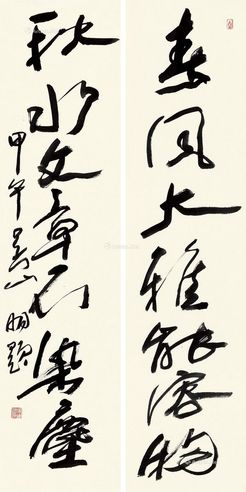 春风大雅能容物
秋水文章不染尘
甲午吴山明题